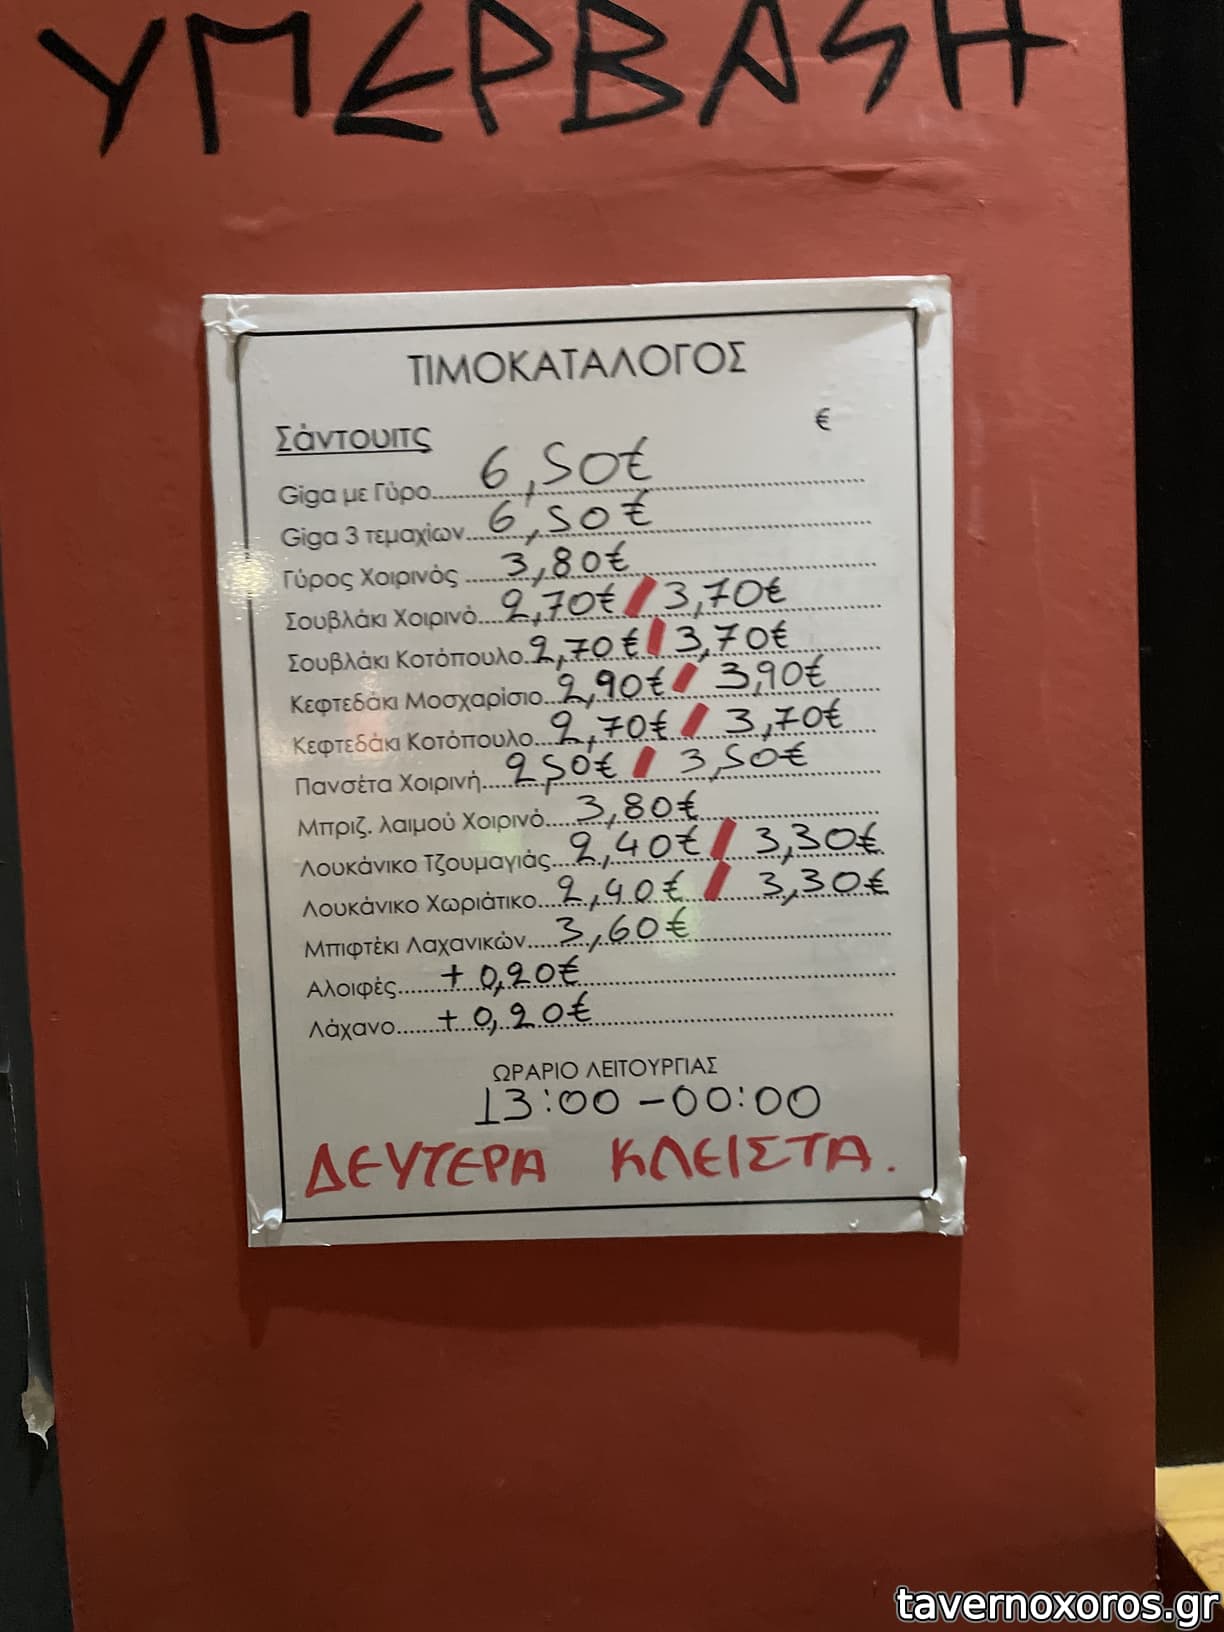 ΥΠΕΡΒΑΣΗ
ΤΙΜΟΚΑΤΑΛΟΓΟΣ
€
Σάντουιτς
Giga με Γύρο 6,50€
Giga 3 τεμαχίων 6,50€
Γύρος Χοιρινός 3,80€
Σουβλάκι Χοιρινό 2,70€ / 3,70€
Σουβλάκι Κοτόπουλο 2,70€ / 3,70€
Κεφτεδάκι Μοσχαρίσιο 2,90€ / 3,90€
Κεφτεδάκι Κοτόπουλο 2,70€ / 3,70€
Πανσέτα Χοιρινή 2,50€ / 3,50€
Μπριζ. λαιμού Χοιρινό 3,80€
Λουκάνικο Τζουμαγιάς 2,40€ / 3,30€
Λουκάνικο Χωριάτικο 2,40€ / 3,30€
Μπιφτέκι Λαχανικών 3,60€
Αλοιφές + 0,20€
Λάχανο + 0,20€
ΩΡΑΡΙΟ ΛΕΙΤΟΥΡΓΙΑΣ
13:00 - 00:00
ΔΕΥΤΕΡΑ ΚΛΕΙΣΤΑ.
tavernoxoros.gr